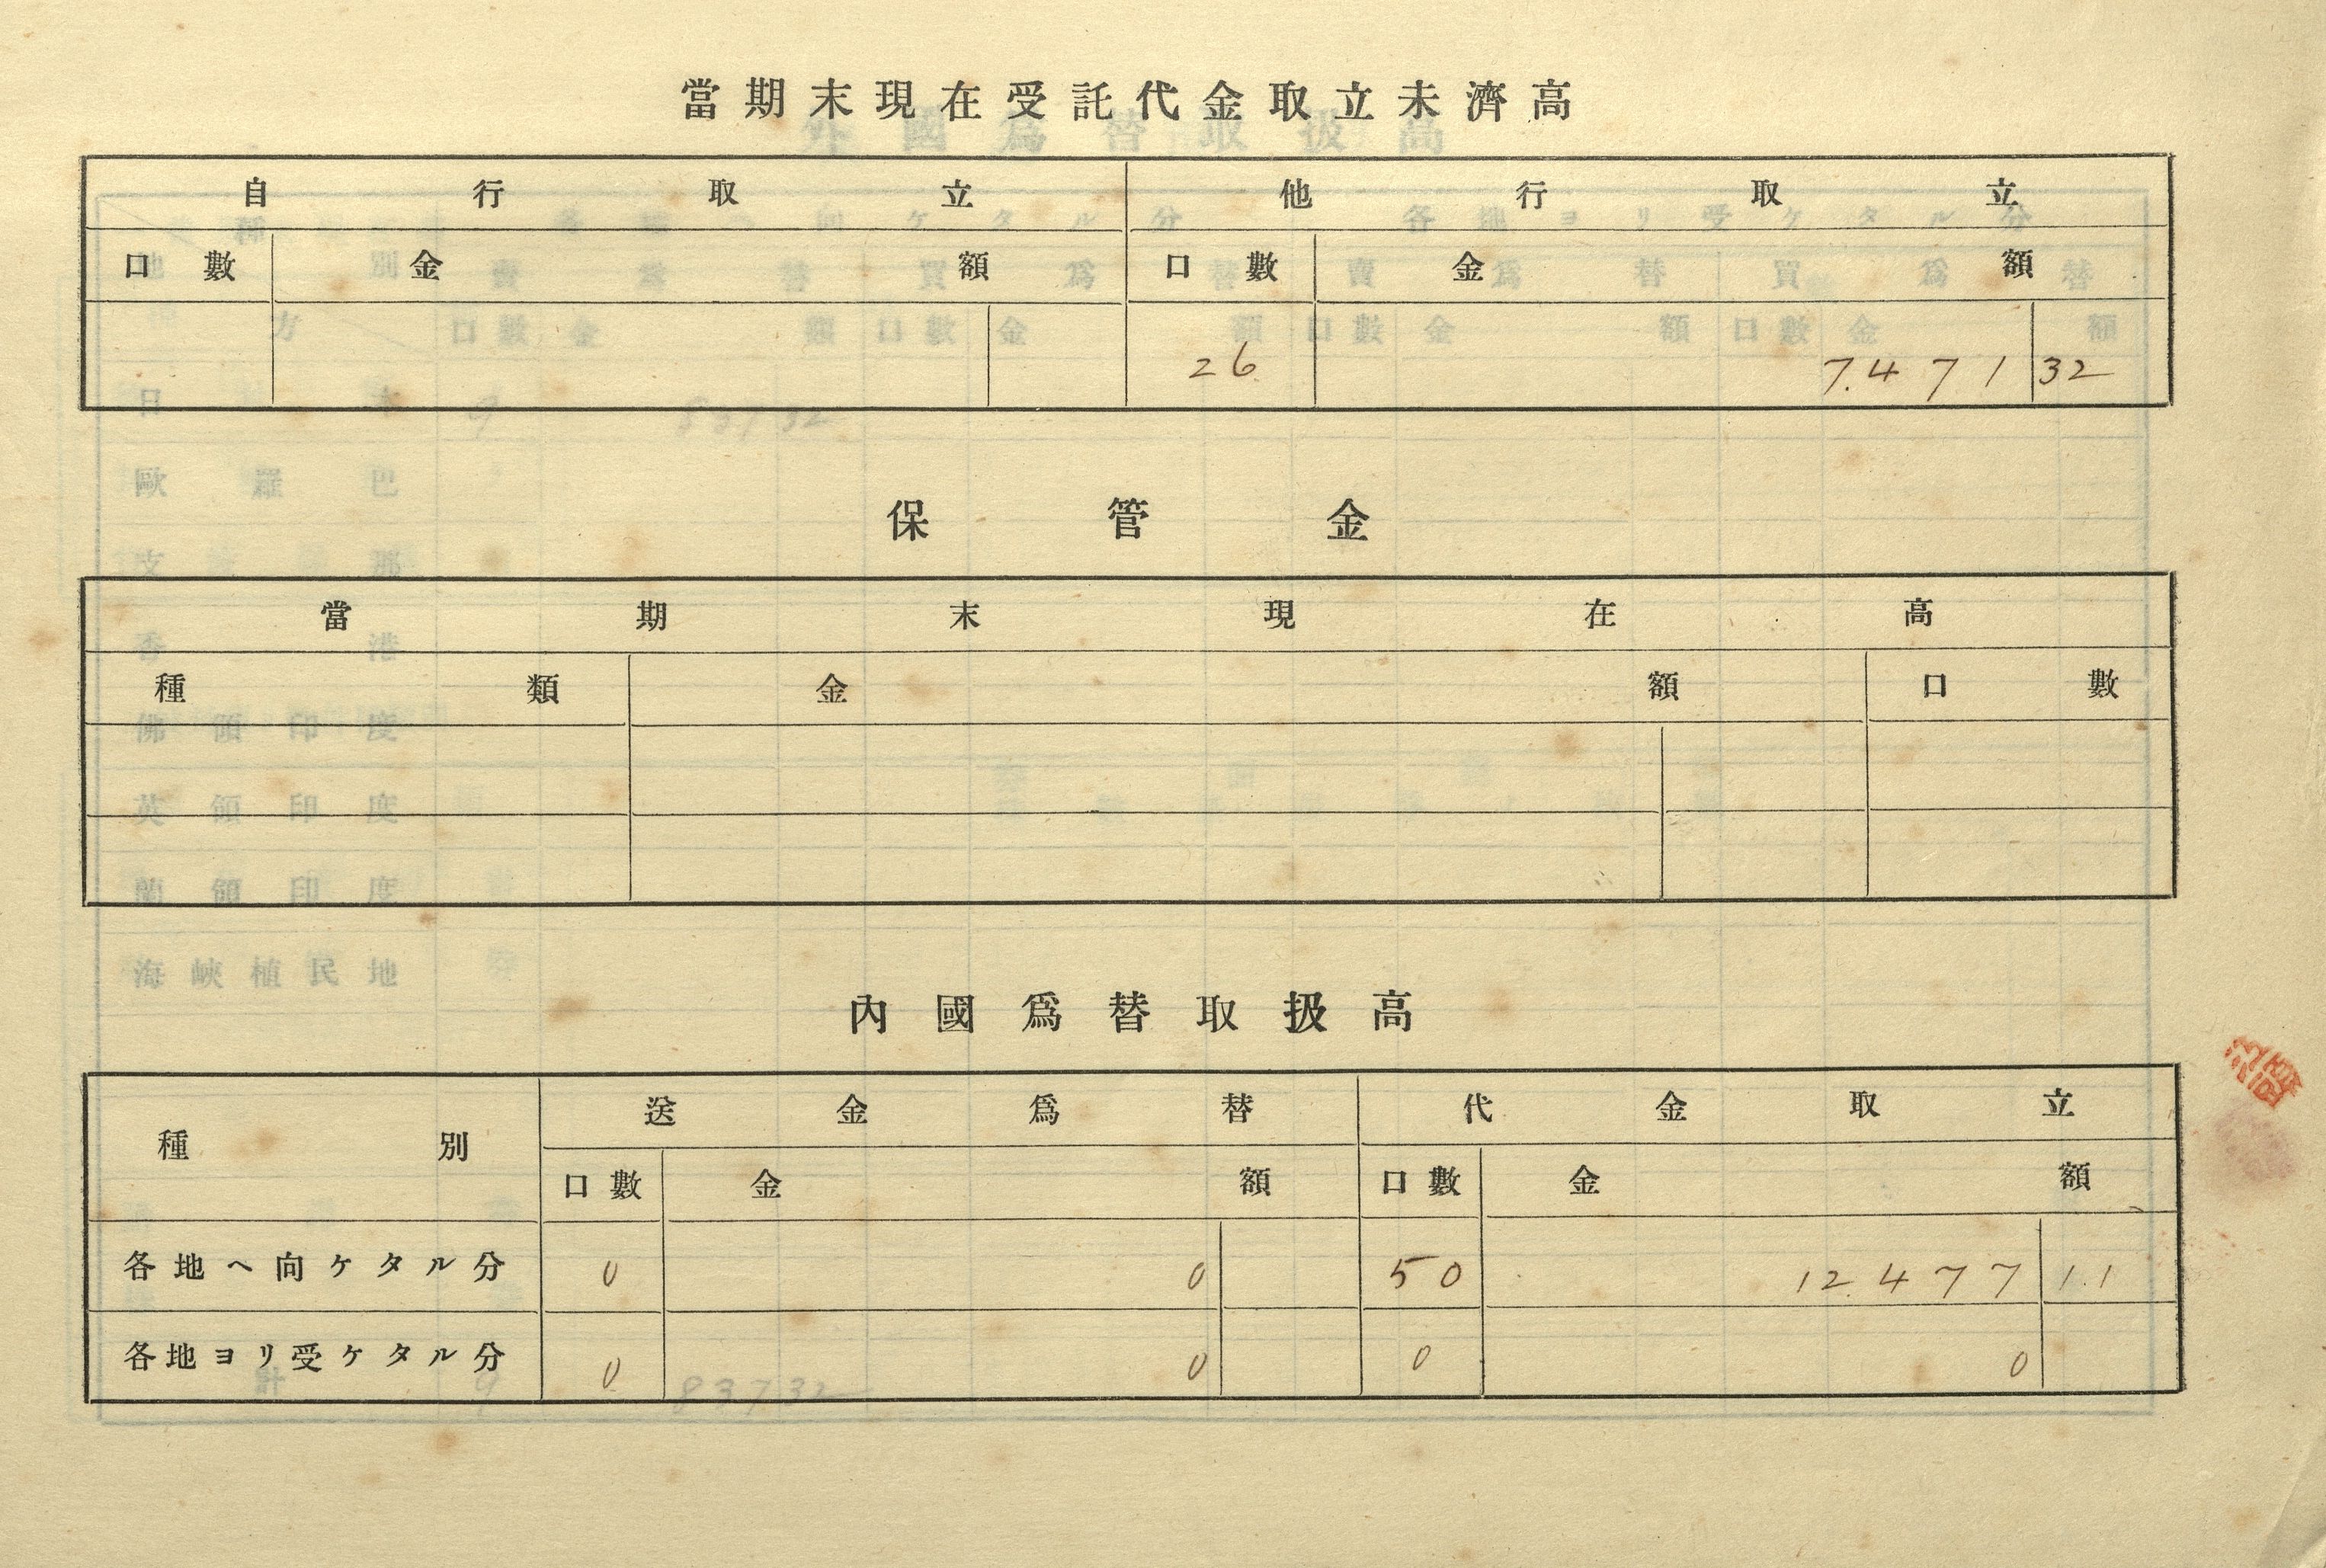 當期末現在受託代金取立未濟高
自行取立 他行取立
口數 金額 口數 金額
26 7.471 32
保管金
當期末現在高
種類 金額 口數
內國爲替取扱高
種別 送金爲替 代金取立
口數 金額 口數 金額
各地ヘ向ケタル分 0 0 50 12.477 11
各地ヨリ受ケタル分 0 0 0 0